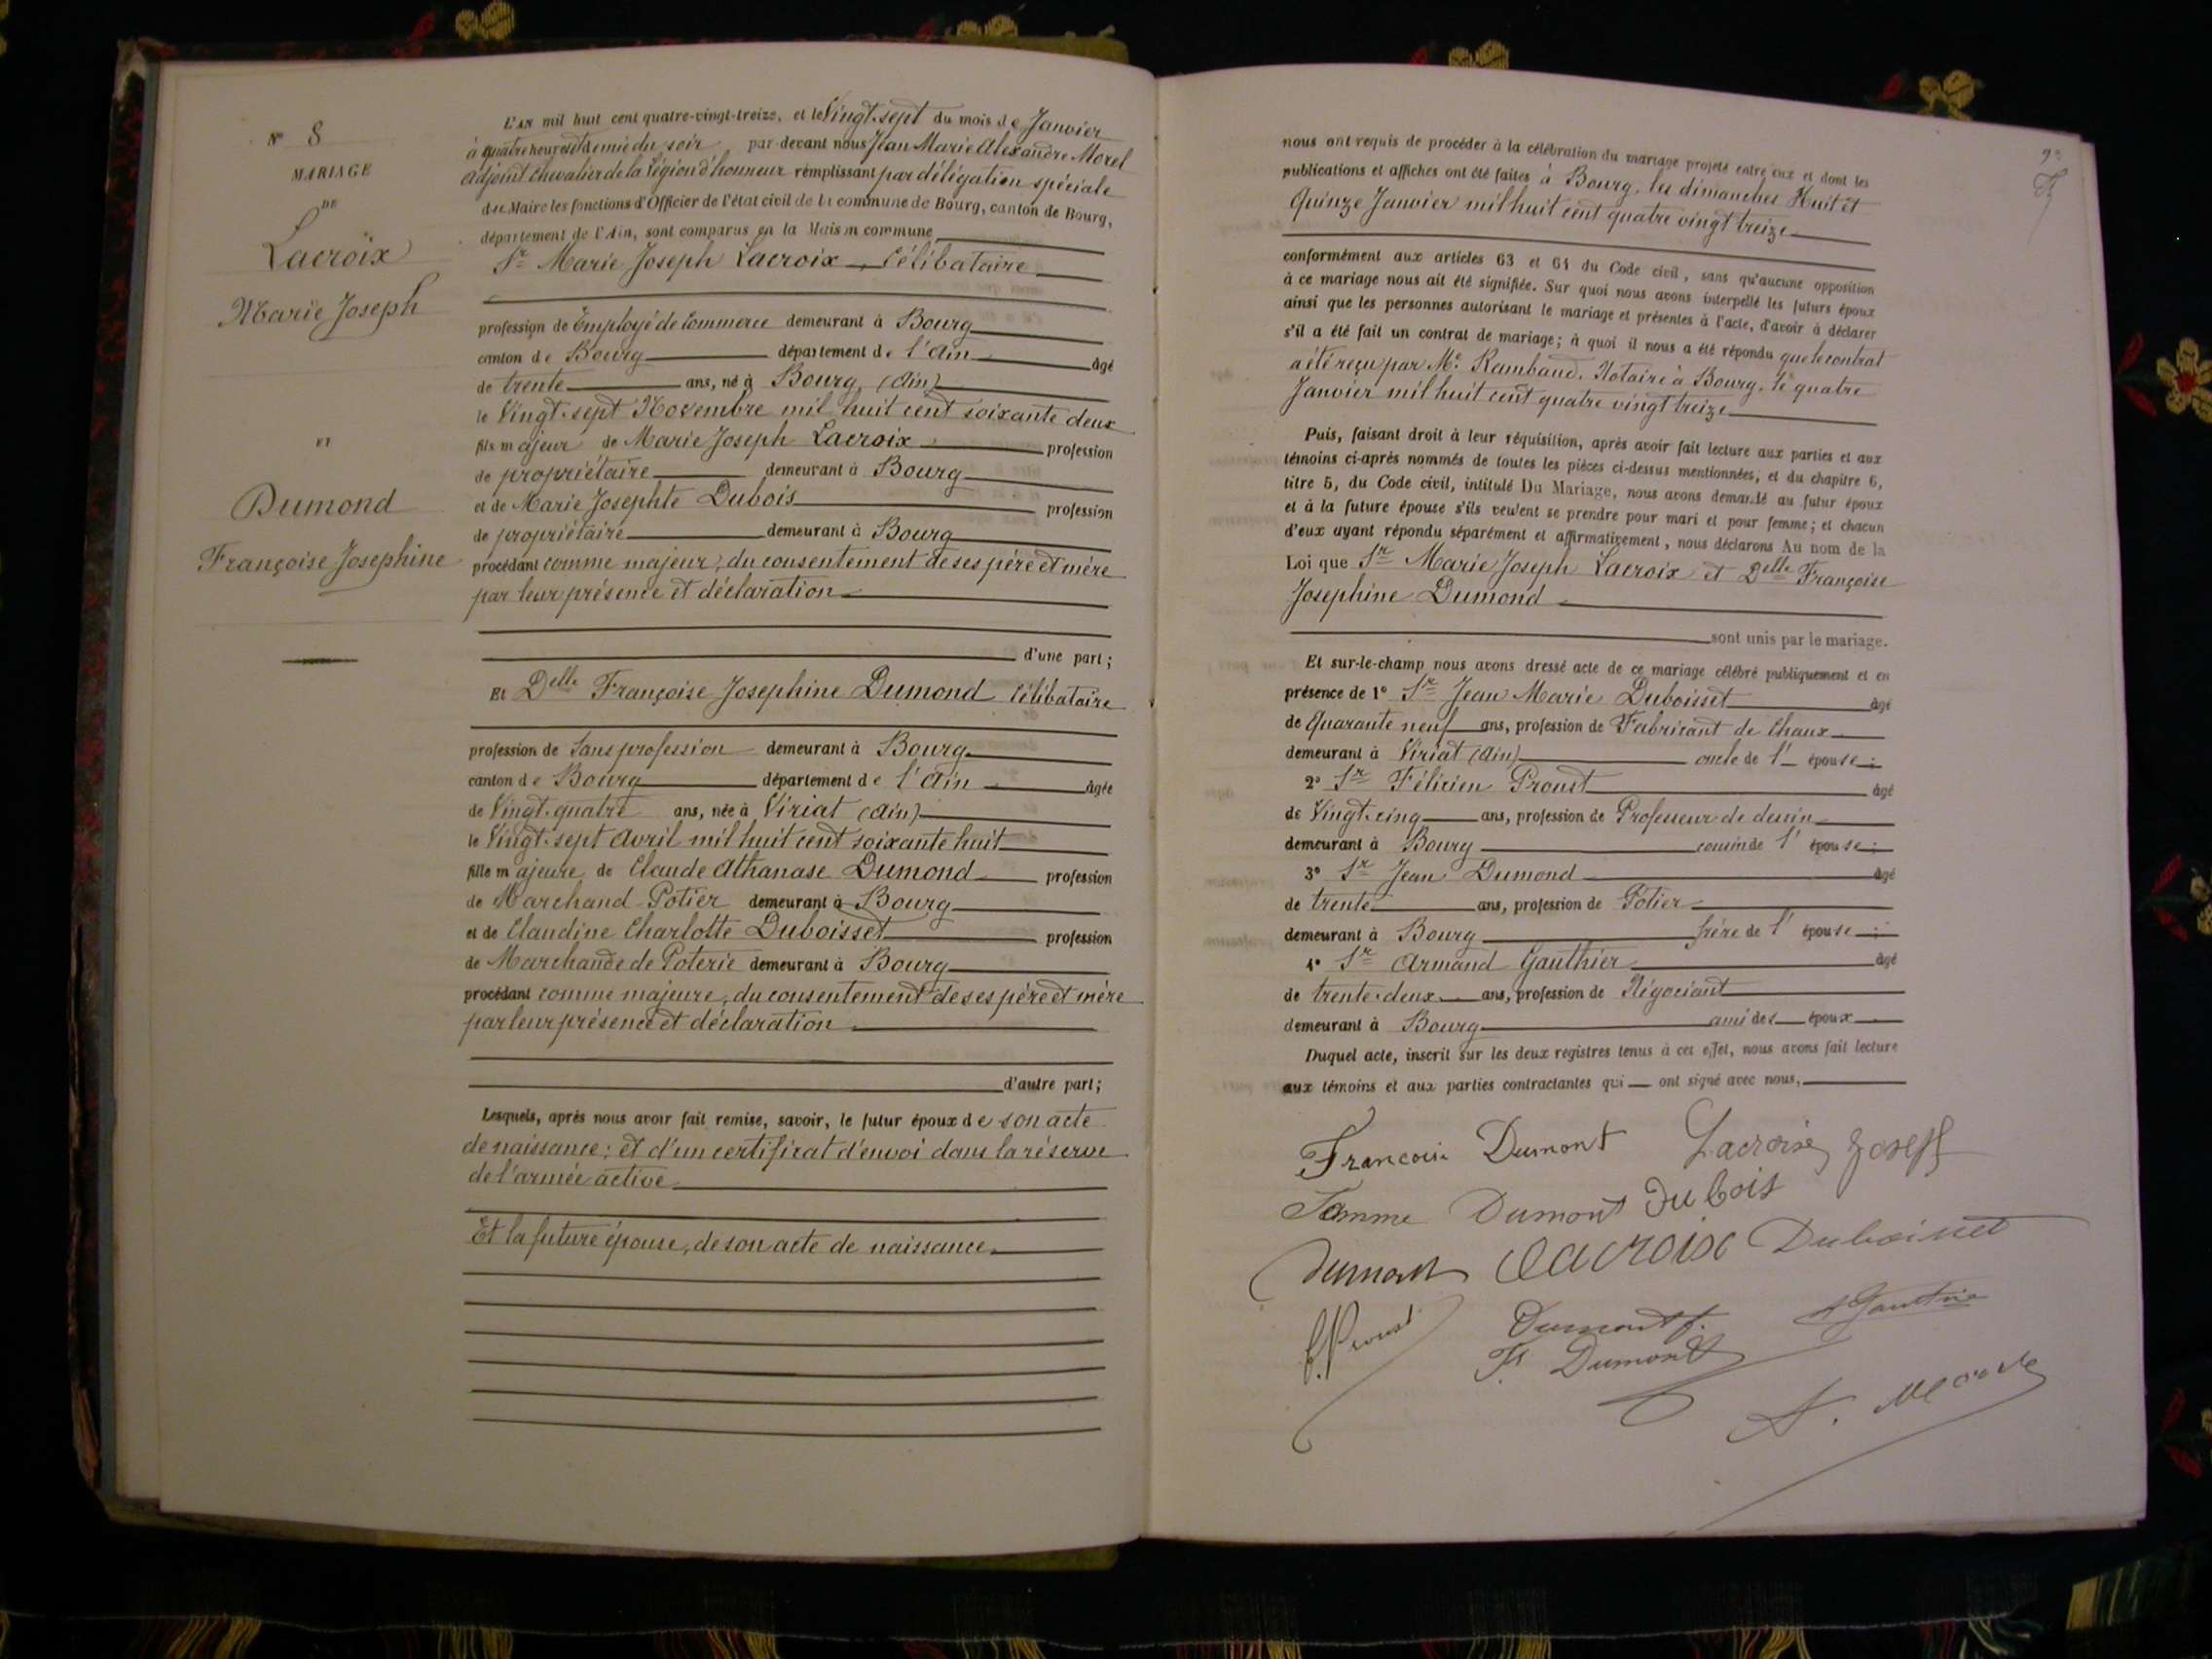 N° 8
MARIAGE
DE
Lacroix
Marie Joseph
ET
Dumond
Françoise Josephine
L'AN mil huit cent quatre-vingt-treize, et le Vingt-sept du mois de Janvier
à quatre heures et demie du soir par-devant nous Jean Marie Alexandre Morel
adjoint chevalier de la Légion d'honneur remplissant par délégation spéciale
du Maire les fonctions d'Officier de l'état civil de la commune de Bourg, canton de Bourg,
département de l'Ain, sont comparus en la Maison commune
Sr Marie Joseph Lacroix, célibataire
profession de Employé de Commerce demeurant à Bourg
canton de Bourg département de l'Ain âgé
de trente ans, né à Bourg, (Ain)
le Vingt-sept Novembre mil huit cent soixante deux
fils majeur de Marie Joseph Lacroix profession
de propriétaire demeurant à Bourg
et de Marie Josephte Dubois profession
de propriétaire demeurant à Bourg
procédant comme majeur, du consentement de ses père et mère
par leur présence et déclaration
d'une part;
Et Delle Françoise Josephine Dumond célibataire
profession de Sans profession demeurant à Bourg
canton de Bourg département de l'Ain âgée
de Vingt-quatre ans, née à Viriat (Ain)
le Vingt-sept Avril mil huit cent soixante huit
fille majeure de Claude Athanase Dumond profession
de Marchand Potier demeurant à Bourg
et de Claudine Charlotte Duboisset profession
de Marchande de Poterie demeurant à Bourg
procédant comme majeure, du consentement de ses père et mère
par leur présence et déclaration
d'autre part;
Lesquels, après nous avoir fait remise, savoir, le futur époux de son acte
de naissance; et d'un certificat d'envoi dans la réserve
de l'armée active
Et la future épouse, de son acte de naissance.
nous ont requis de procéder à la célébration du mariage projeté entre eux et dont les
publications et affiches ont été faites à Bourg, les dimanches Huit et
Quinze Janvier mil huit cent quatre vingt treize
conformément aux articles 63 et 64 du Code civil, sans qu'aucune opposition
à ce mariage nous ait été signifiée. Sur quoi nous avons interpellé les futurs époux
ainsi que les personnes autorisant le mariage et présentes à l'acte, d'avoir à déclarer
s'il a été fait un contrat de mariage; à quoi il nous a été répondu que le contrat
a été reçu par Me Rambaud, Notaire à Bourg, le quatre
Janvier mil huit cent quatre vingt treize
Puis, faisant droit à leur réquisition, après avoir fait lecture aux parties et aux
témoins ci-après nommés de toutes les pièces ci-dessus mentionnées, et du chapitre 6,
titre 5, du Code civil, intitulé Du Mariage, nous avons demandé au futur époux
et à la future épouse s'ils veulent se prendre pour mari et pour femme; et chacun
d'eux ayant répondu séparément et affirmativement, nous déclarons Au nom de la
Loi que Sr Marie Joseph Lacroix et Delle Françoise
Josephine Dumond
sont unis par le mariage.
Et sur-le-champ nous avons dressé acte de ce mariage célébré publiquement et en
présence de 1° Sr Jean Marie Duboisset âgé
de Quarante neuf ans, profession de Fabricant de Chaux
demeurant à Viriat (Ain) oncle de l'épouse;
2° Sr Félicien Proust âgé
de Vingt-cinq ans, profession de Professeur de dessin
demeurant à Bourg cousin de l'épouse;
3° Sr Jean Dumond âgé
de trente ans, profession de Potier
demeurant à Bourg frère de l'épouse;
4° Sr Armand Gauthier âgé
de trente-deux ans, profession de Négociant
demeurant à Bourg ami des époux
Duquel acte, inscrit sur les deux registres tenus à cet effet, nous avons fait lecture
aux témoins et aux parties contractantes qui ont signé avec nous,
Dumont Lacroix Joseph
Dumont Dubois
Dumont Lacroix Duboisset
F. Proust Dumont J. A Gauthier
F. Dumont
A. Morel